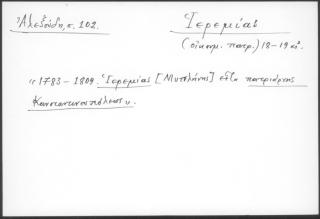 Ἀλεξούδη, σ. 102.
Ἱερεμίας
(οἰκουμ. πατρ.) 18-19 αἰ.
« 1783 - 1809. Ἱερεμίας [Μυτιλήνης] εἶτα πατριάρχης
Κωνσταντινουπόλεως».